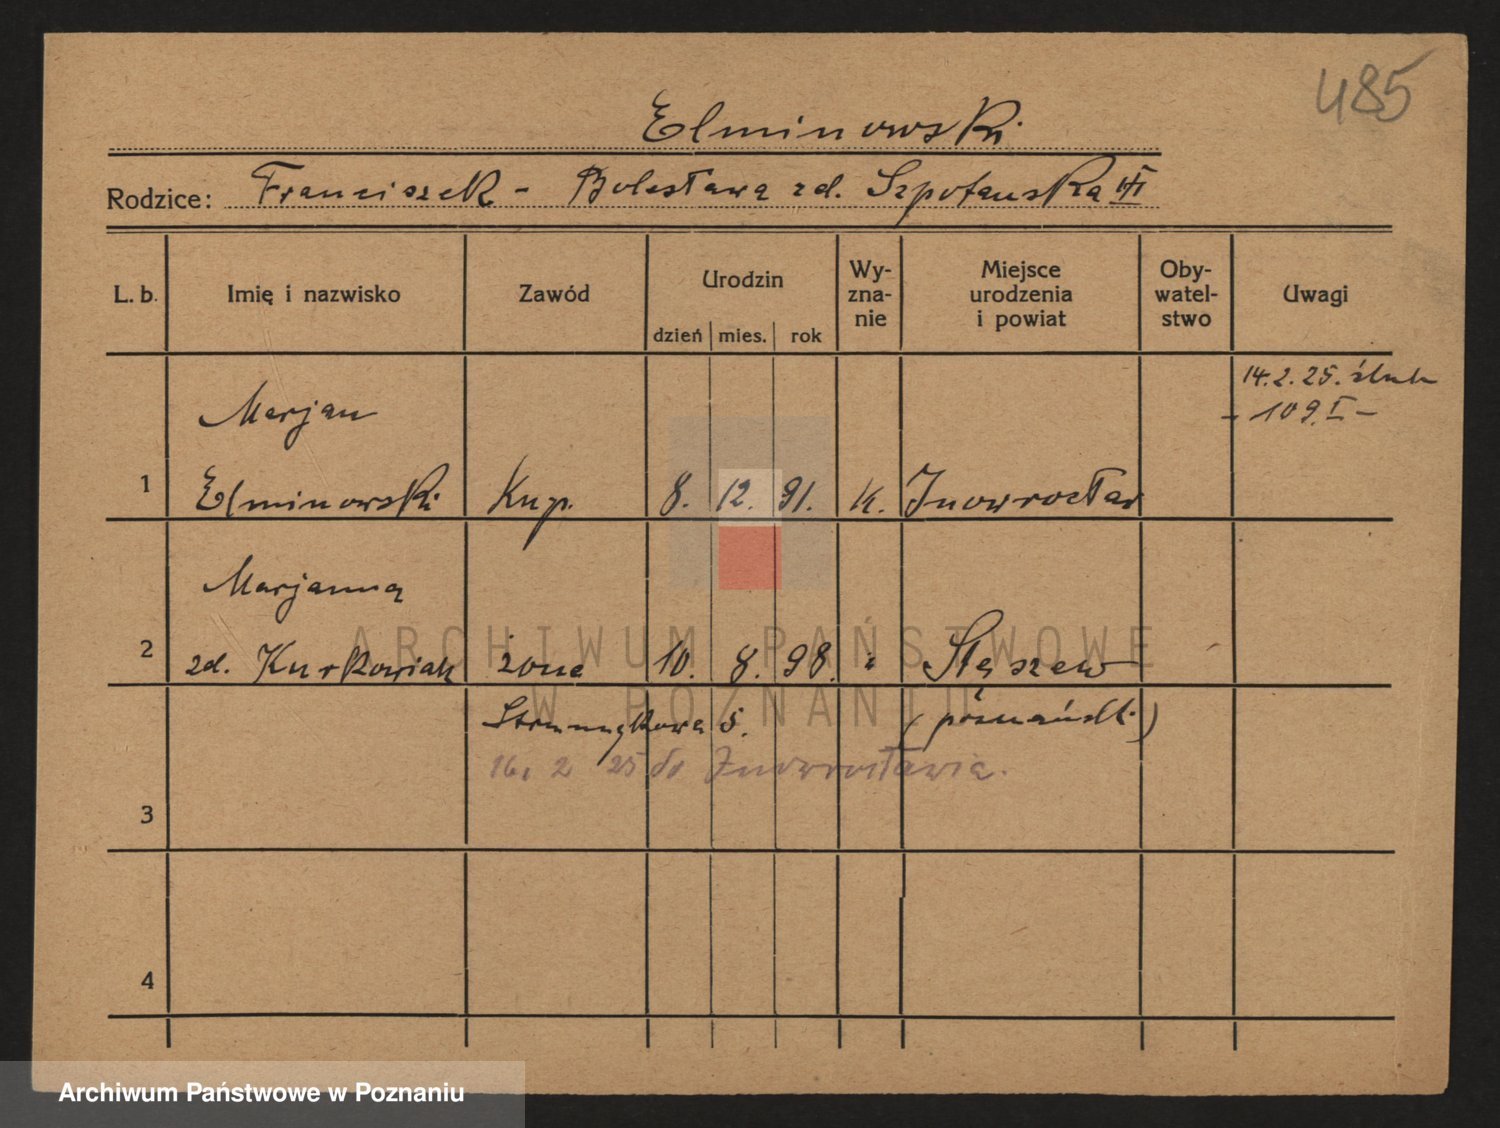 485
Elminowski
Rodzice: Franciszek - Bolesława zd. Szpotańska
L. b. Imię i nazwisko Zawód Urodzin dzień mies. rok Wy-zna-nie Miejsce urodzenia i powiat Oby-watel-stwo Uwagi
14.2.25. ślub
- 109. I -
Marjan
1 Elminowski Kup. 8. 12. 91. k. Inowrocław
Marjanna
2 zd. Kurkowiak żona 10. 8. 98. " Stęszew
5. (poznański.)
16. 2 25 do Inowrocławia.
3
4
ARCHIWUM PAŃSTWOWE
W POZNANIU
Archiwum Państwowe w Poznaniu